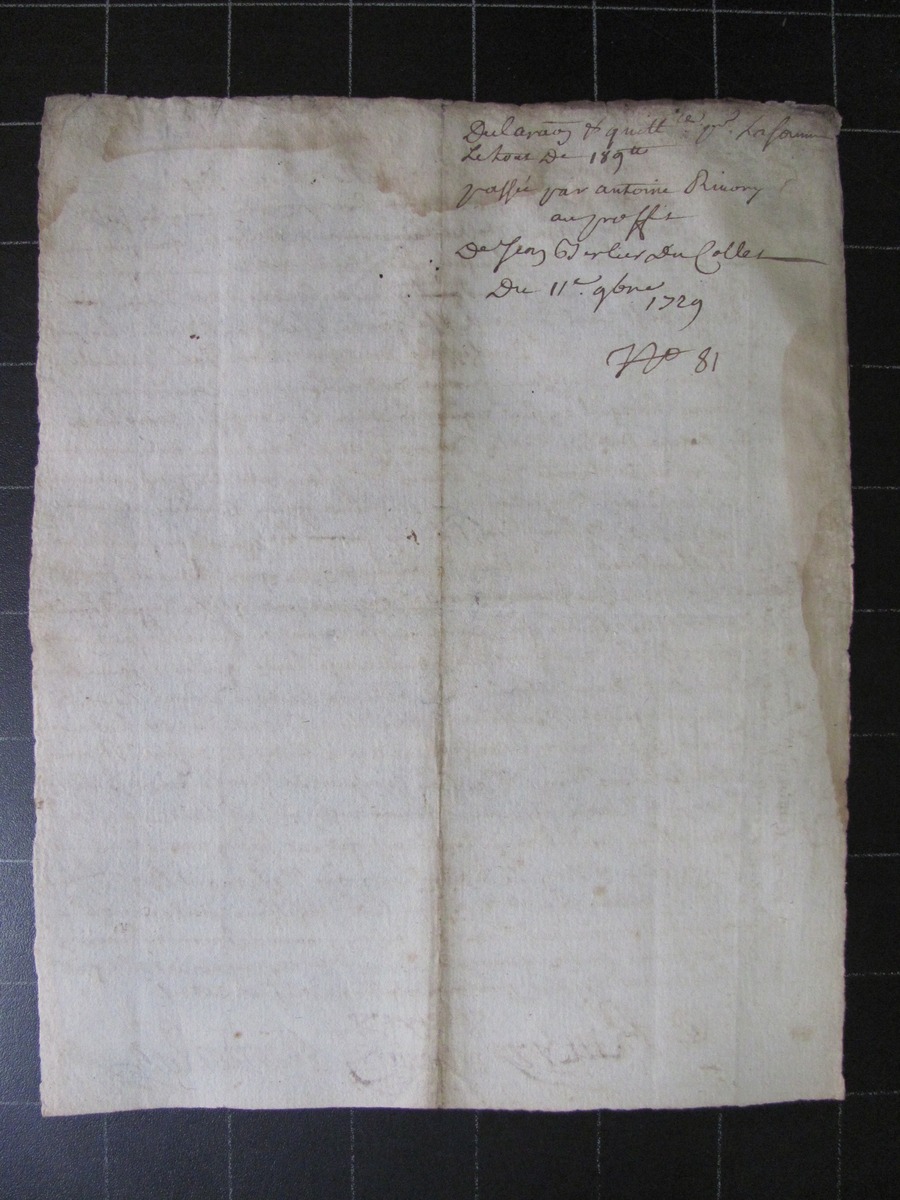 Declara͠on & quitt ce pr. La somme
Le tout De 189 tt
passée par antoine Rivory
au proffit
De Jean Berlier Du Collet
Du 11e. 9bre
1729
No 81